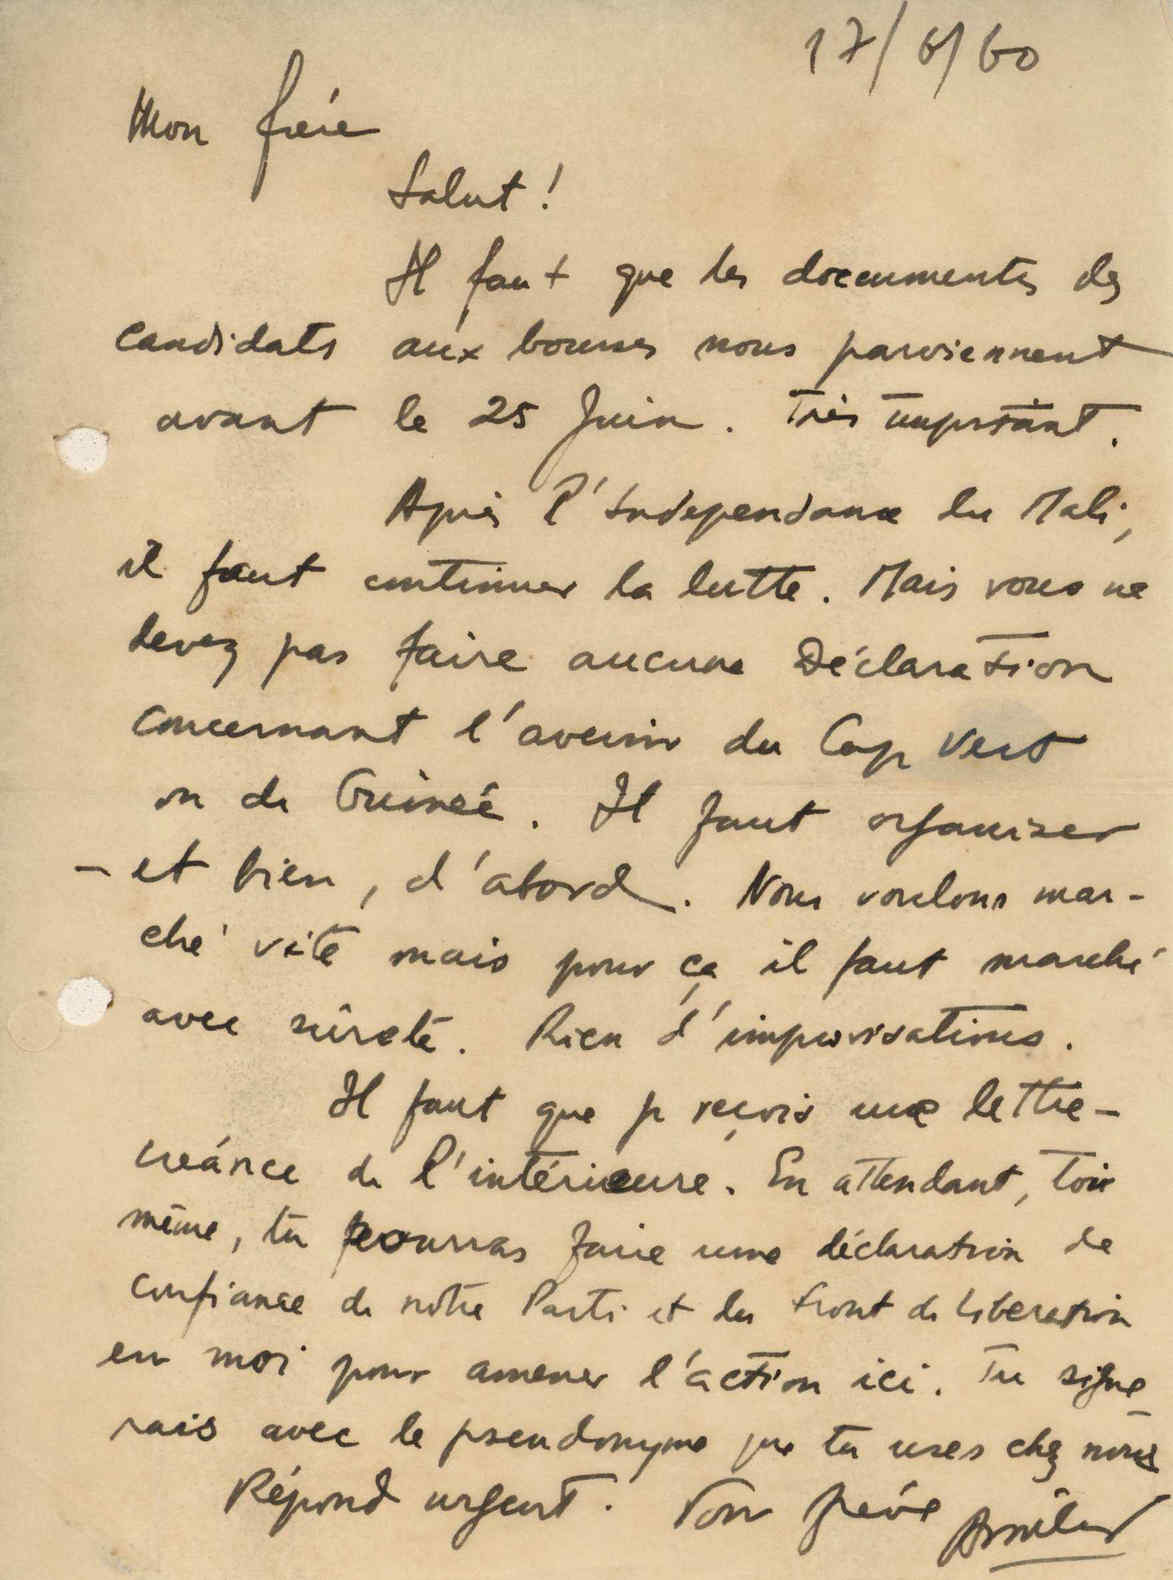 17/6/60
Mon frére
Salut!
Il faut que les documentes des
candidats aux bourses nous parviennent
avant le 25 Juin. Très important.
Après l'Independance du Mali,
il faut continuer la lutte. Mais vous ne
devez pas faire aucune Déclaration
concernant l'avenir du Cap Vert
ou de Guineé. Il faut organiser
- et bien, d'abord. Nous voulons mar-
ché vite mais pour ça il faut marché
avec sûreté. Rien d'improvisations.
Il faut que je reçois une lettre-
creánce de l'intérieure. En attendant, toi
même, tu pourras faire une déclaration de
confiance de notre Parti et du Front de Liberation
en moi pour amener l'action ici. Tu signe
rais avec le pseudonyme que tu uses chez nous
Répond urgent. Ton frére